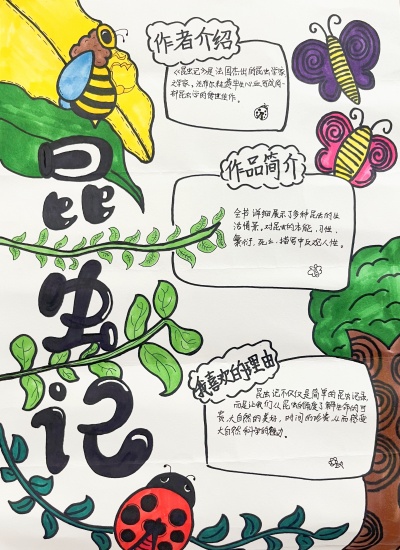 昆虫记
作者介绍
《昆虫记》是法国杰出的昆虫学家
文学家，法布尔耗费毕生心血写成的一
种昆虫学的传世佳作。
作品简介
全书详细展示了多种昆虫的生
活情景，对昆虫的本能，习性，
繁衍，死亡，描写中反观人性。
我喜欢的理由
昆虫记不仅仅是简单的昆虫记录，
而是让我们从昆虫的角度了解生命的可
贵，大自然的美好，时间的珍贵，从而感受
大自然科学的魅力。